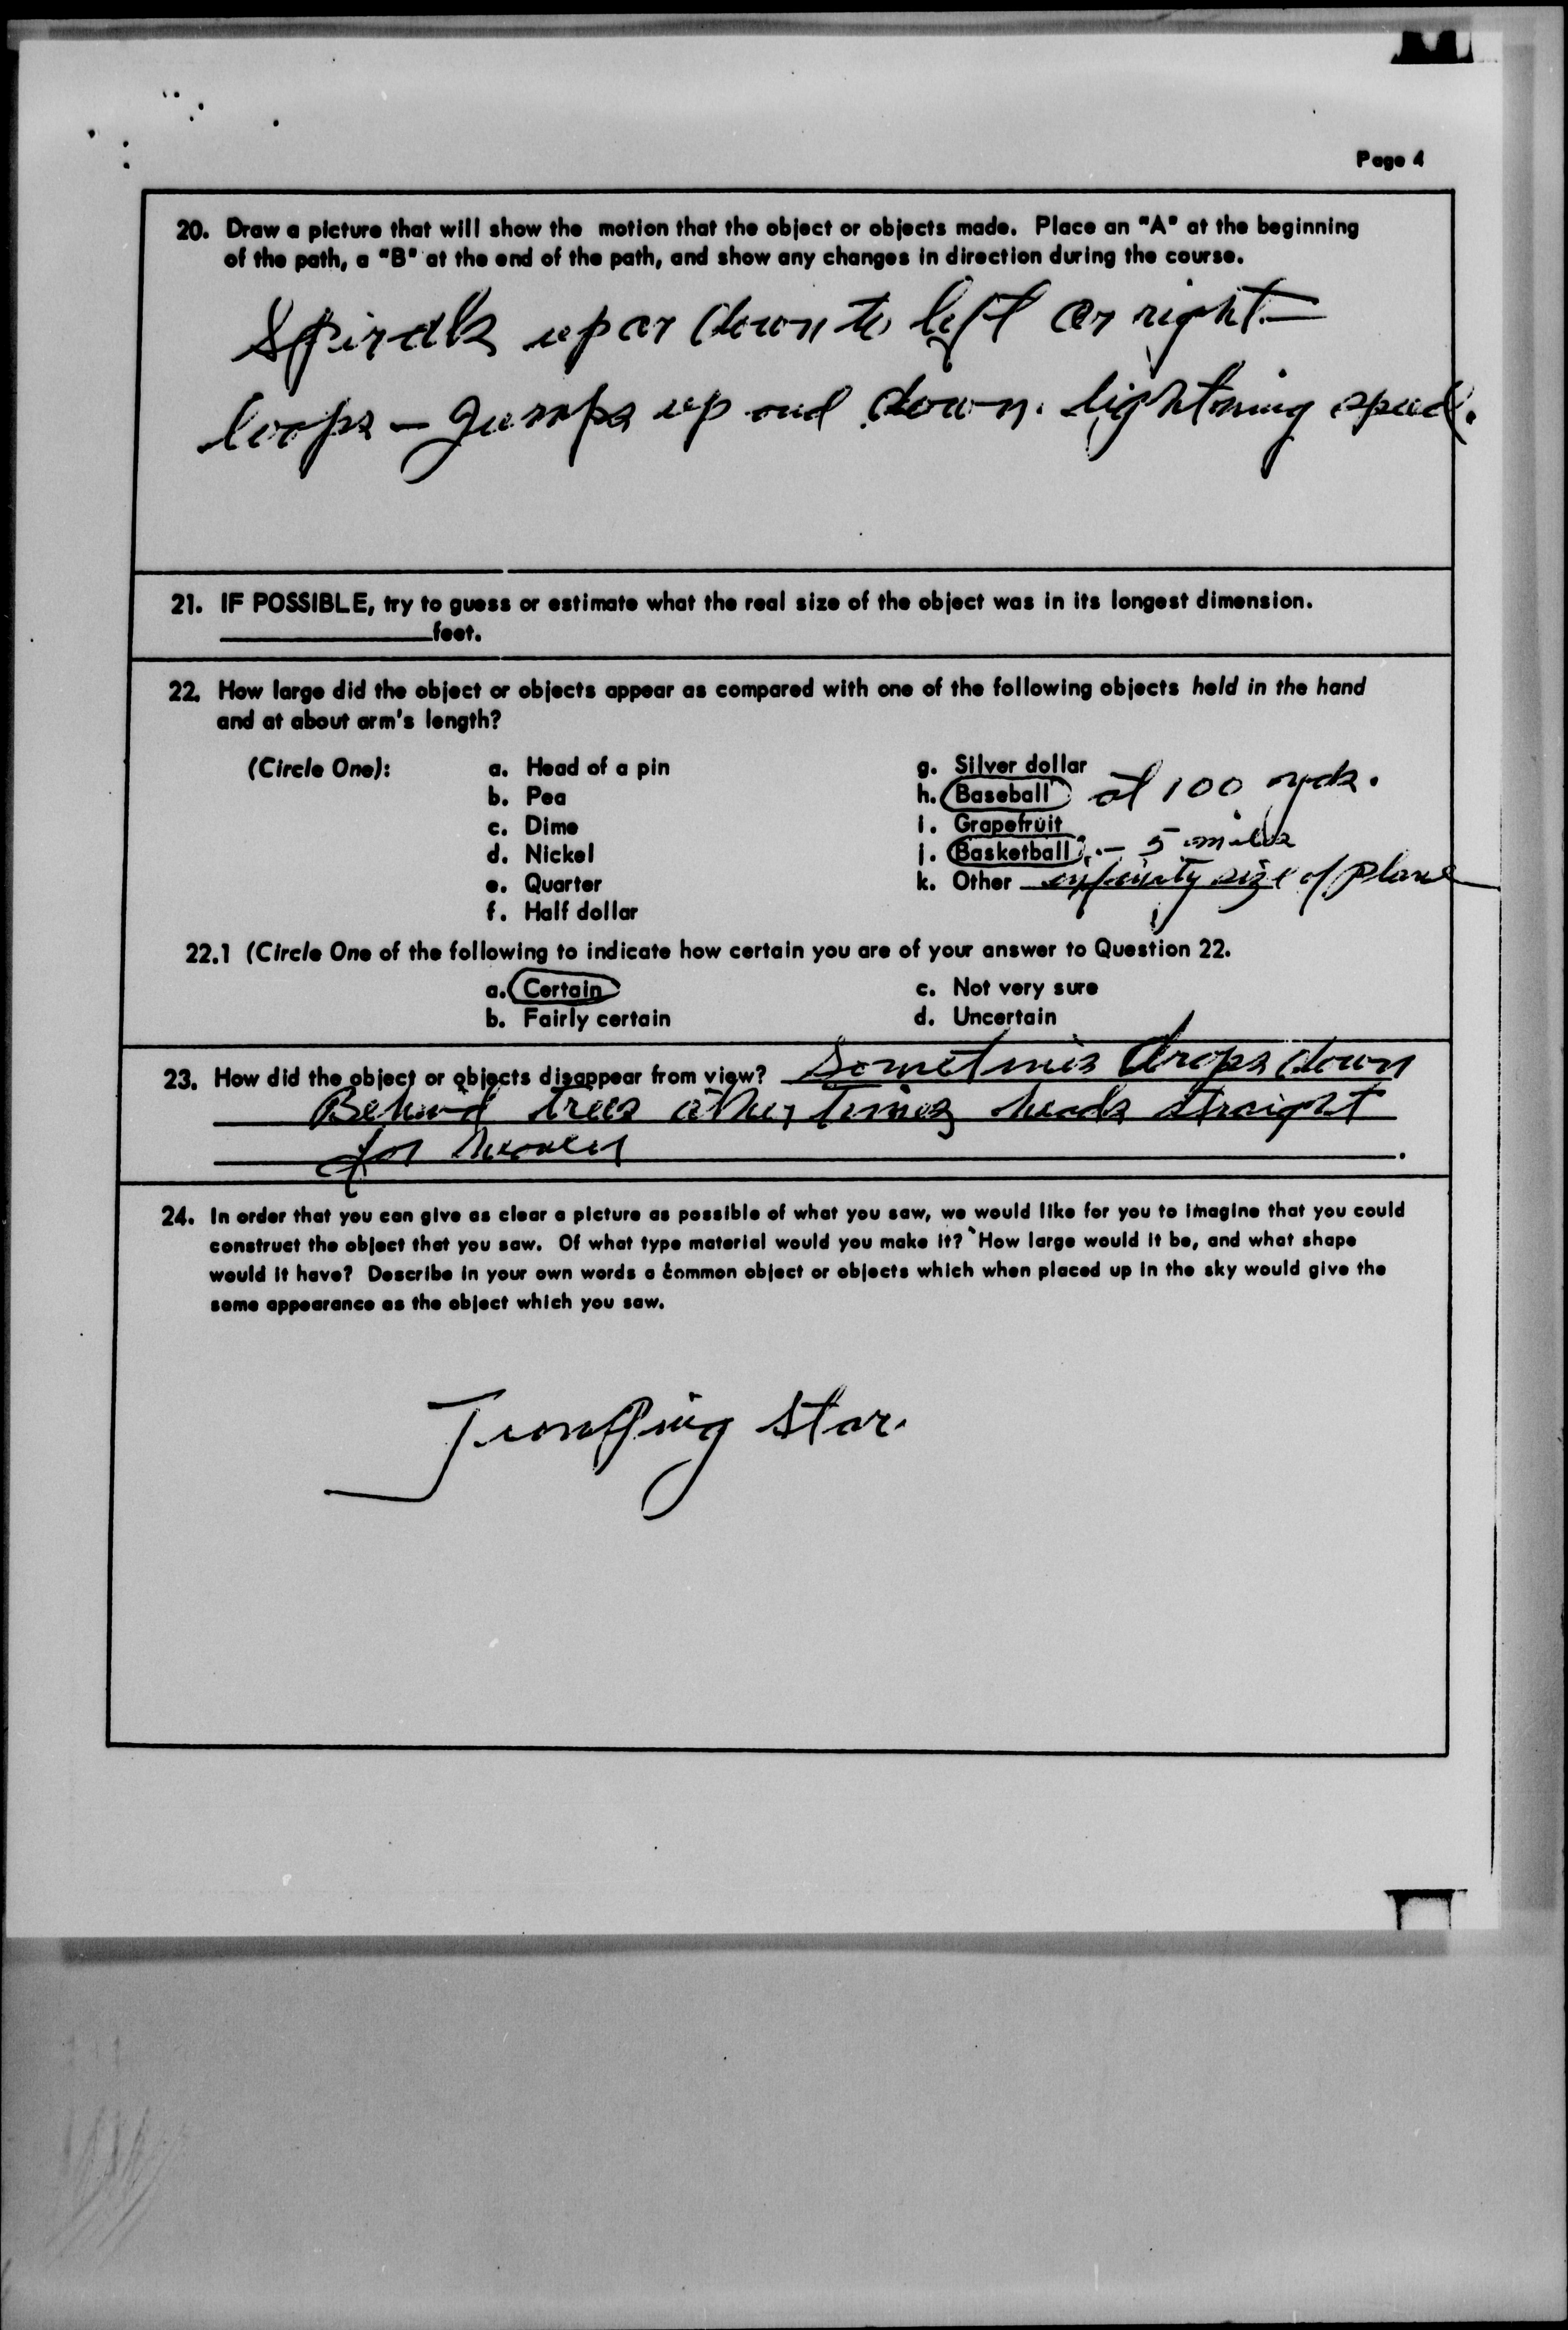 Page 4
20. Draw a picture that will show the motion that the object or objects made. Place an "A" at the beginning
of the path, a "B" at the end of the path, and show any changes in direction during the course.
Spirals up or down to left or right -
loops - Jumps up and down. lightning speed.
21. IF POSSIBLE, try to guess or estimate what the real size of the object was in its longest dimension.
feet.
22. How large did the object or objects appear as compared with one of the following objects held in the hand
and at about arm's length?
(Circle One): a. Head of a pin g. Silver dollar
b. Pea h. Baseball at 100 yds.
c. Dime i. Grapefruit
d. Nickel j. Basketball - 5 miles
e. Quarter k. Other infinity size of plane
f. Half dollar
22.1 (Circle One of the following to indicate how certain you are of your answer to Question 22.
a. Certain c. Not very sure
b. Fairly certain d. Uncertain
23. How did the object or objects disappear from view? Sometimes drops down
Behind trees other Times heads straight
for heaven
24. In order that you can give as clear a picture as possible of what you saw, we would like for you to imagine that you could
construct the object that you saw. Of what type material would you make it? How large would it be, and what shape
would it have? Describe in your own words a common object or objects which when placed up in the sky would give the
same appearance as the object which you saw.
Jumping star.